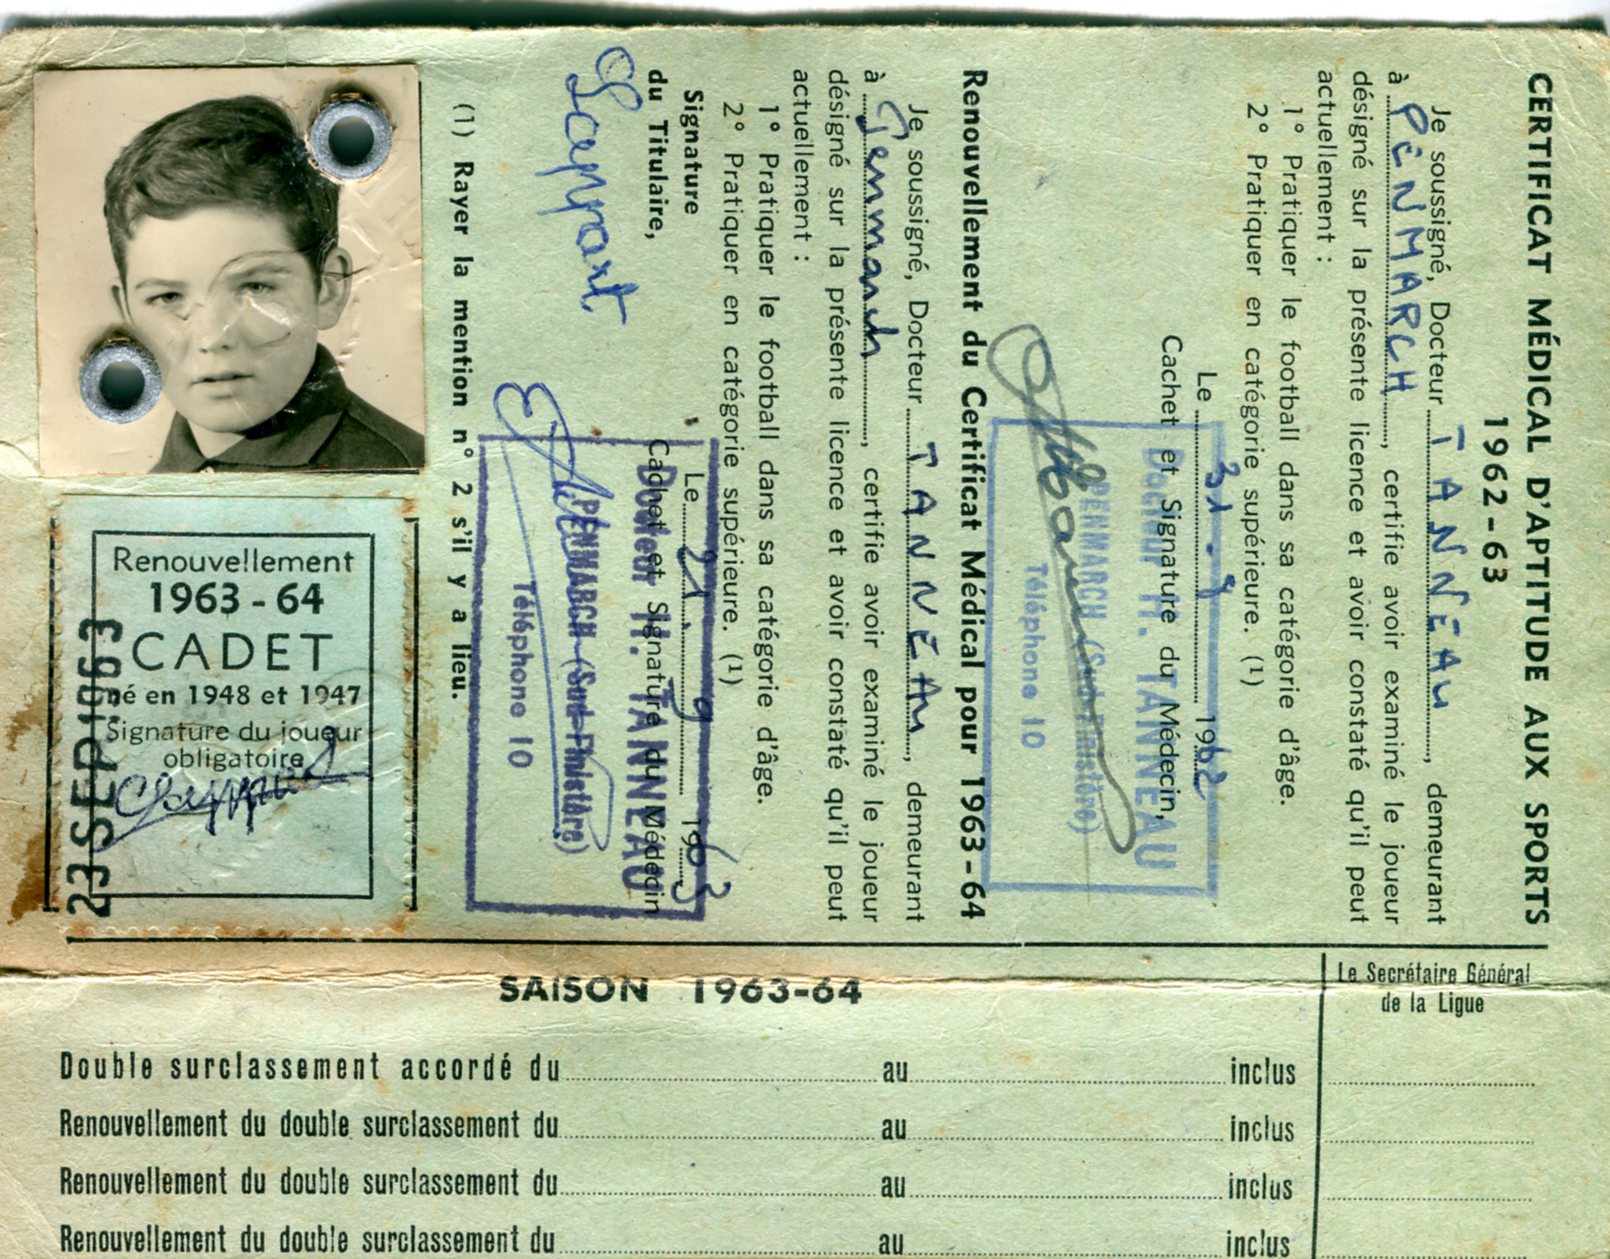 CERTIFICAT MÉDICAL D'APTITUDE AUX SPORTS
1962-63
Je soussigné, Docteur TANNEAU, demeurant
à PENMARCH, certifie avoir examiné le joueur
désigné sur la présente licence et avoir constaté qu'il peut
actuellement :
1° Pratiquer le football dans sa catégorie d'âge.
2° Pratiquer en catégorie supérieure. (1)
Le 31.8 1962
Cachet et Signature du Médecin,
Docteur H. TANNEAU
PENMARCH (Sud-Finistère)
Téléphone 10
Renouvellement du Certificat Médical pour 1963-64
Je soussigné, Docteur TANNEAU, demeurant
à Penmarch, certifie avoir examiné le joueur
désigné sur la présente licence et avoir constaté qu'il peut
actuellement :
1° Pratiquer le football dans sa catégorie d'âge.
2° Pratiquer en catégorie supérieure. (1)
Signature
du Titulaire,
Le 21.9 1963
Cachet et Signature du Médecin
Docteur H. TANNEAU
PENMARCH (Sud-Finistère)
Téléphone 10
(1) Rayer la mention n° 2 s'il y a lieu.
Renouvellement
1963-64
CADET
né en 1948 et 1947
Signature du joueur
obligatoire
23 SEP 1963
SAISON 1963-64
Le Secrétaire Général
de la Ligue
Double surclassement accordé du au inclus
Renouvellement du double surclassement du au inclus
Renouvellement du double surclassement du au inclus
Renouvellement du double surclassement du au inclus